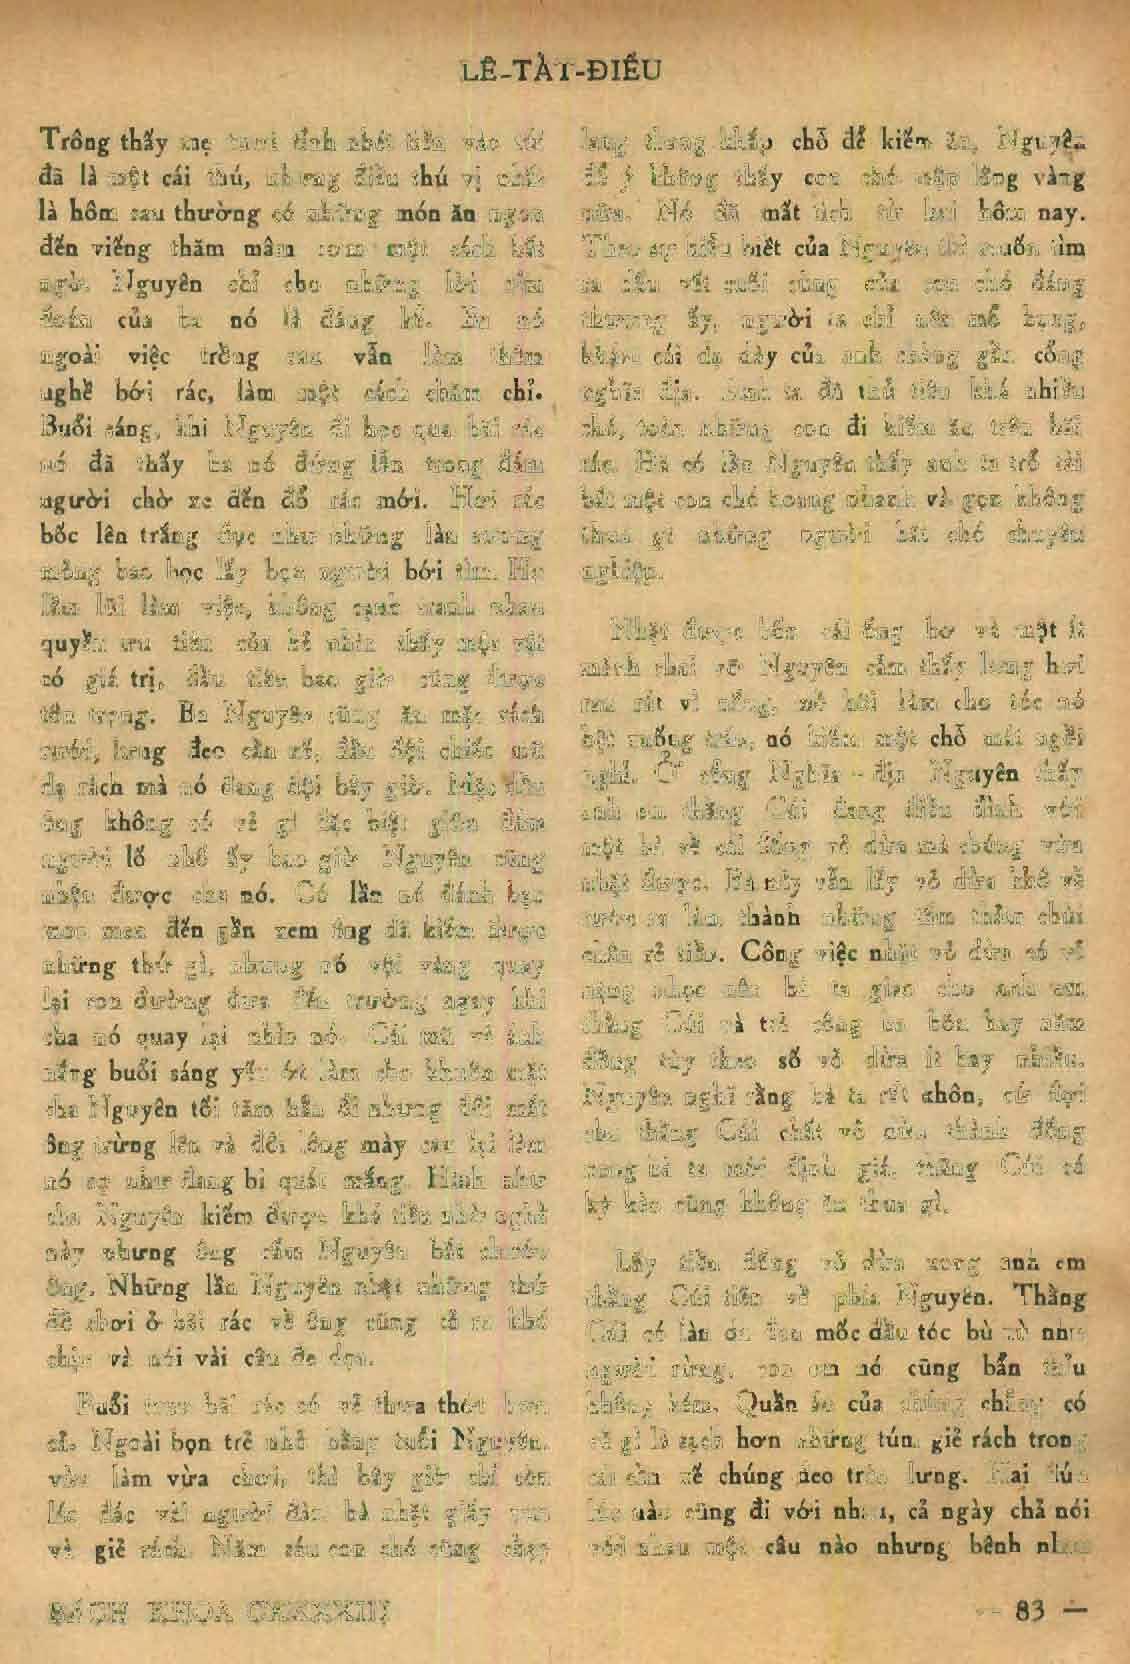 LÊ-TẤT-ĐIỀU
Trông thấy mẹ tươi tỉnh nhét tiền vào túi
đã là một cái thú, nhưng điều thú vị nhất
là hôm sau thường có những món ăn ngon
đến viếng thăm mâm cơm một cách bất
ngờ. Nguyên chỉ cho những lời
đoán của ba nó là đáng kể. Ba nó
ngoài việc trồng rau vẫn làm thêm
nghề bới rác, làm một cách chăm chỉ.
Buổi sáng, khi Nguyên đi học qua bãi rác
nó đã thấy ba nó đứng lẫn trong đám
người chờ xe đến đổ rác mới. Hơi rác
bốc lên trắng đục như những làn sương
mỏng bao bọc lấy bọn người bới tìm. Họ
lầm lũi làm việc, không cạnh tranh nhau
quyền ưu tiên của kẻ nhìn thấy một vật
có giá trị, đầu tiên bao giờ cũng được
tôn trọng. Ba Nguyên cũng ăn mặc rách
rưới, lưng đeo cần xé, đầu đội chiếc mũ
dạ rách mà nó đang đội bây giờ. Mặc dầu
ông không có vẻ gì đặc biệt giữa đám
người lố nhố ấy bao giờ Nguyên cũng
nhận được cha nó. Có lần nó đánh bạo
mon men đến gần xem ông đã kiếm được
những thứ gì, nhưng nó vội vàng quay
lại con đường đưa đến trường ngay khi
cha nó quay lại nhìn nó. Cái mũ và ánh
nắng buổi sáng yếu ớt làm cho khuôn mặt
cha Nguyên tối tăm hẳn đi nhưng đôi mắt
ông trừng lên và đôi lông mày cau lại làm
nó sợ như đang bị quát mắng. Hình như
cha Nguyên kiếm được khá tiền nhờ nghề
này nhưng ông cấm Nguyên bắt chước
ông. Những lần Nguyên nhặt những thứ
đồ chơi ở bãi rác về ông cũng tỏ ra khó
chịu và nói vài câu đe dọa.
Buổi trưa bãi rác có vẻ thưa thớt hơn
cả. Ngoài bọn trẻ nhỏ bằng tuổi Nguyên,
vừa làm vừa chơi, thì bây giờ chỉ còn
lác đác vài người đàn bà nhặt giấy vụn
và giẻ rách. Năm sáu con chó cũng chạy
lang thang khắp chỗ để kiếm ăn, Nguyên
để ý không thấy con chó mập lông vàng
nữa. Nó đã mất tích từ hai hôm nay.
Theo sự hiểu biết của Nguyên thì muốn tìm
ra dấu vết cuối cùng của con chó đáng
thương ấy, người ta chỉ nên mổ bụng,
khám cái dạ dày của anh chàng gần cổng
nghĩa địa. Anh ta đã thủ tiêu khá nhiều
chó, toàn những con đi kiếm ăn trên bãi
rác. Đã có lần Nguyên thấy anh ta trổ tài
bắt một con chó hoang nhanh và gọn không
thua gì những người bắt chó chuyên
nghiệp.
Nhặt được bốn cái ống bơ và một ít
mảnh chai vỡ Nguyên cảm thấy lưng hơi
ran rát vì nắng, mồ hôi làm cho tóc nó
bệt xuống trán, nó kiếm một chỗ mát ngồi
nghỉ. Ở cổng Nghĩa - địa Nguyên thấy
anh em thằng Cúi đang điều đình với
một bà về cái đống vỏ dừa mà chúng vừa
nhặt được. Bà này vẫn lấy vỏ dừa khô về
tước ra làm thành những tấm thảm chùi
chân rẻ tiền. Công việc nhặt vỏ dừa có vẻ
nặng nhọc nên bà ta giao cho anh em
thằng Cúi và trả công ba bốn hay năm
đồng tùy theo số vỏ dừa ít hay nhiều.
Nguyên nghĩ rằng bà ta rất khôn, cứ đợi
cho thằng Cúi chất vỏ dừa thành đống
xong bà ta mới định giá, thằng Cúi có
kỳ kèo cũng không ăn thua gì.
Lấy tiền đống vỏ dừa xong anh em
thằng Cúi tiến về phía Nguyên. Thằng
Cúi có làn da đen mốc đầu tóc bù xù như
người rừng, con em nó cũng bẩn thỉu
không kém. Quần áo của chúng chẳng có
vẻ gì là sạch hơn những túm giẻ rách trong
cái cần xé chúng đeo trên lưng. Hai đứa
lúc nào cũng đi với nhau, cả ngày chả nói
với nhau một câu nào nhưng bênh nhau
BÁCH KHOA CXXXXIII
— 83 —